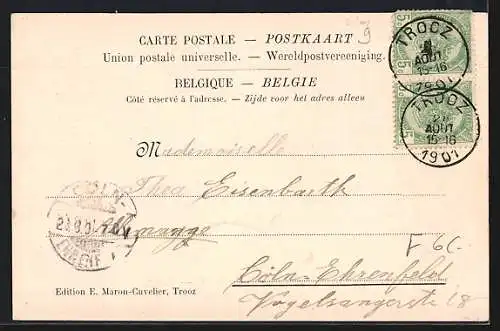 CARTE POSTALE — POSTKAART
Union postale universelle. — Wereldpostvereeniging.
BELGIQUE — BELGIE
Côté réservé à l'adresse. — Zijde voor het adres alleen
TROOZ
AOUT
15-16
1901
TROOZ
AOUT
15-16
1901
Mademoiselle
Thea Eisenbarth
Allemagne
F 6C.
Cöln-Ehrenfeld
Vogelsangerste 18
CÖLN-
EHRENF
Edition E. Maron-Cuvelier, Trooz